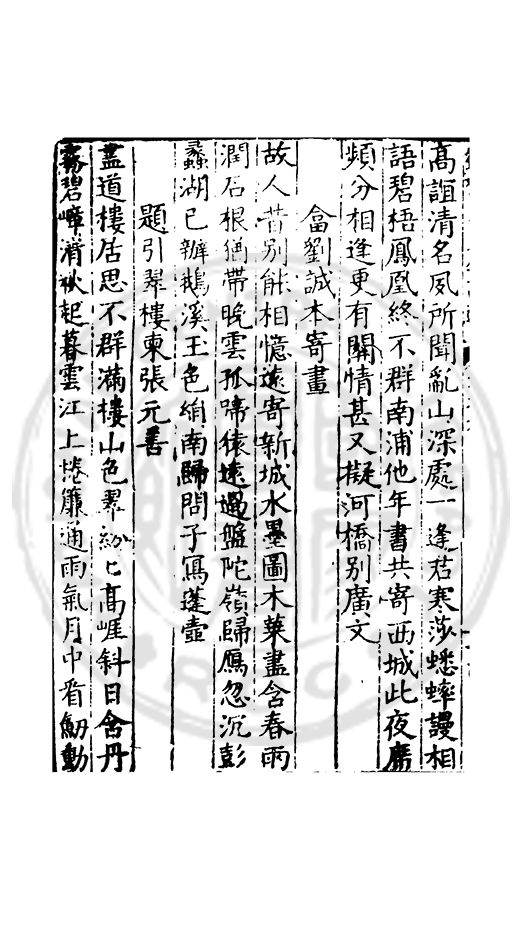 高誼清名夙所聞亂山深處一逢君寒莎蟋蟀謾相
語碧梧鳳凰終不群南浦他年書共寄西城此夜席
頻分相逢更有關情甚又擬河橋別廣文
畣劉誠本寄畫
故人昔別能相憶遠寄新城水墨圖木葉盡含春雨
潤石根猶帶晚雲孤啼猿遠過盤陀嶺歸鴈忽沉彭
蠡湖已辦鵝溪玉色絹南歸問子寫蓬壺
題引翠樓柬張元善
盡道樓居思不群滿樓山色翠紛〻高崖斜日含丹
霧碧嶂清秋起暮雲江上捲簾通雨氣月中看劒動